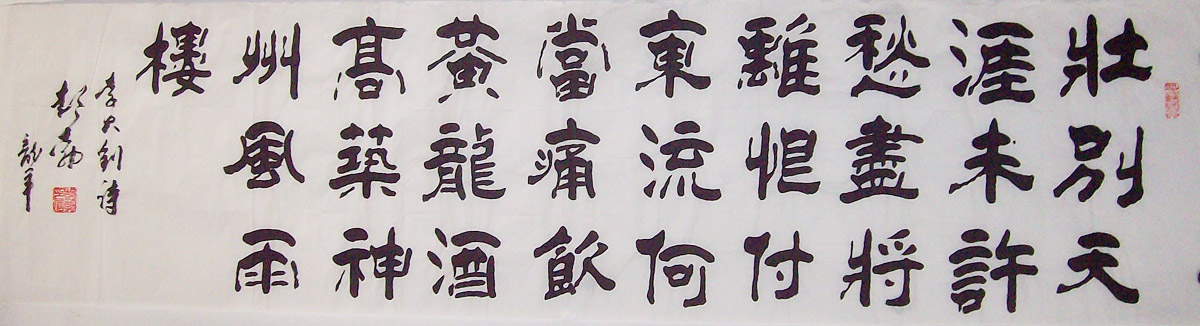 壯別天
涯未許
愁盡將
離恨付
東流何
當痛飲
黃龍酒
髙築神
州風雨
樓
李大釗詩
彭勃
龍年